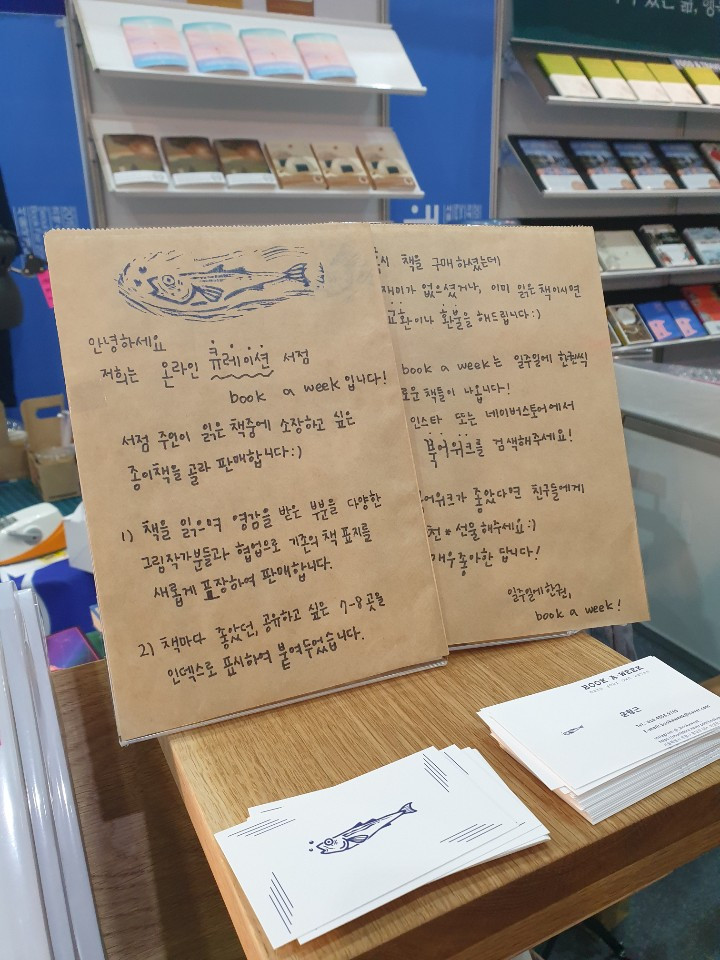 안녕하세요
저희는 온라인 큐레이션 서점
book a week입니다!
서점 주인이 읽은 책중에 소장하고 싶은
종이책을 골라 판매합니다:)
1) 책을 읽으며 영감을 받은 부분을 다양한
그림작가분들과 협업으로 기존의 책 표지를
새롭게 포장하여 판매합니다.
2) 책마다 좋았던, 공유하고 싶은 7-8곳을
인덱스로 표시하여 붙여두었습니다.
책을 구매하셨는데
재미가 없으셨거나, 이미 읽은 책이시면
교환이나 환불을 해드립니다:)
book a week는 일주일에 한권씩
책들이 나옵니다!
인스타 또는 네이버스토어에서
북어위크를 검색해주세요!
좋았다면 친구들에게
선물해주세요:)
좋아한답니다!
일주일에 한권,
book a week!
BOOK A WEEK